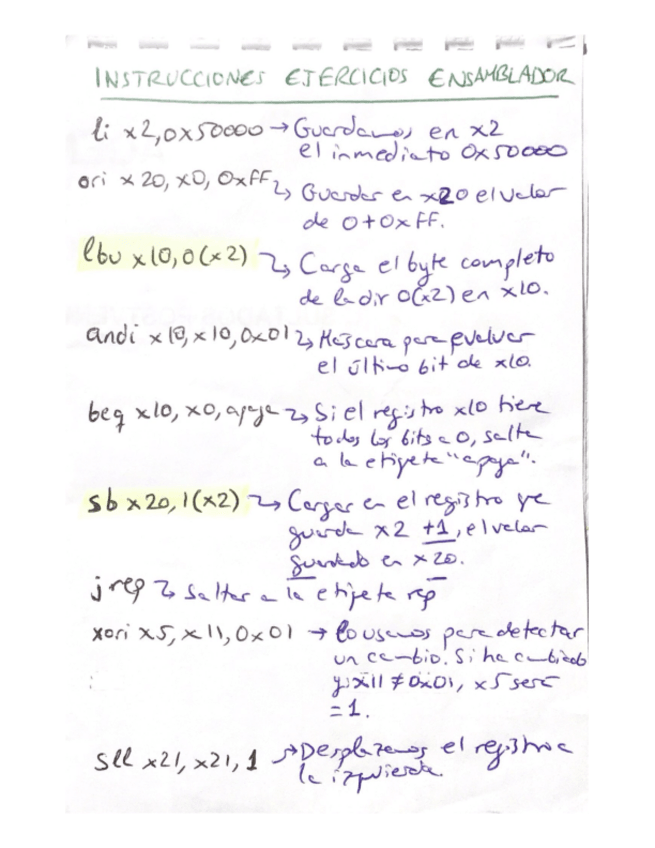 INSTRUCCIONES EJERCICIOS ENSAMBLADOR
li x2,0x50000 → Guardamos en x2
el inmediato 0x50000
ori x20, x0, 0xFF ↳ Guardar en x20 el valor
de 0+0xFF.
lbu x10,0(x2) ↳ Carga el byte completo
de la dir 0(x2) en x10.
andi x10,x10,0x01 ↳ Máscara para evaluar
el último bit de x10.
beq x10, x0, apaga ↳ Si el registro x10 tiene
todos los bits a 0, salta
a la etiqueta "apaga".
sb x20, 1(x2) ↳ Cargar en el registro que
guarda x2 +1, el valor
guardado en x20.
j rep ↳ Saltar a la etiqueta rep
xori x5, x11, 0x01 → Lo usamos para detectar
un cambio. Si ha cambiado
y x11 ≠ 0x01, x5 será
= 1.
sll x21, x21, 1 → Desplazamos el registro a
la izquierda.